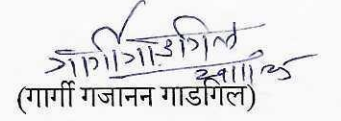 गार्गी गाडगिल
(गार्गी गजानन गाडगिल)